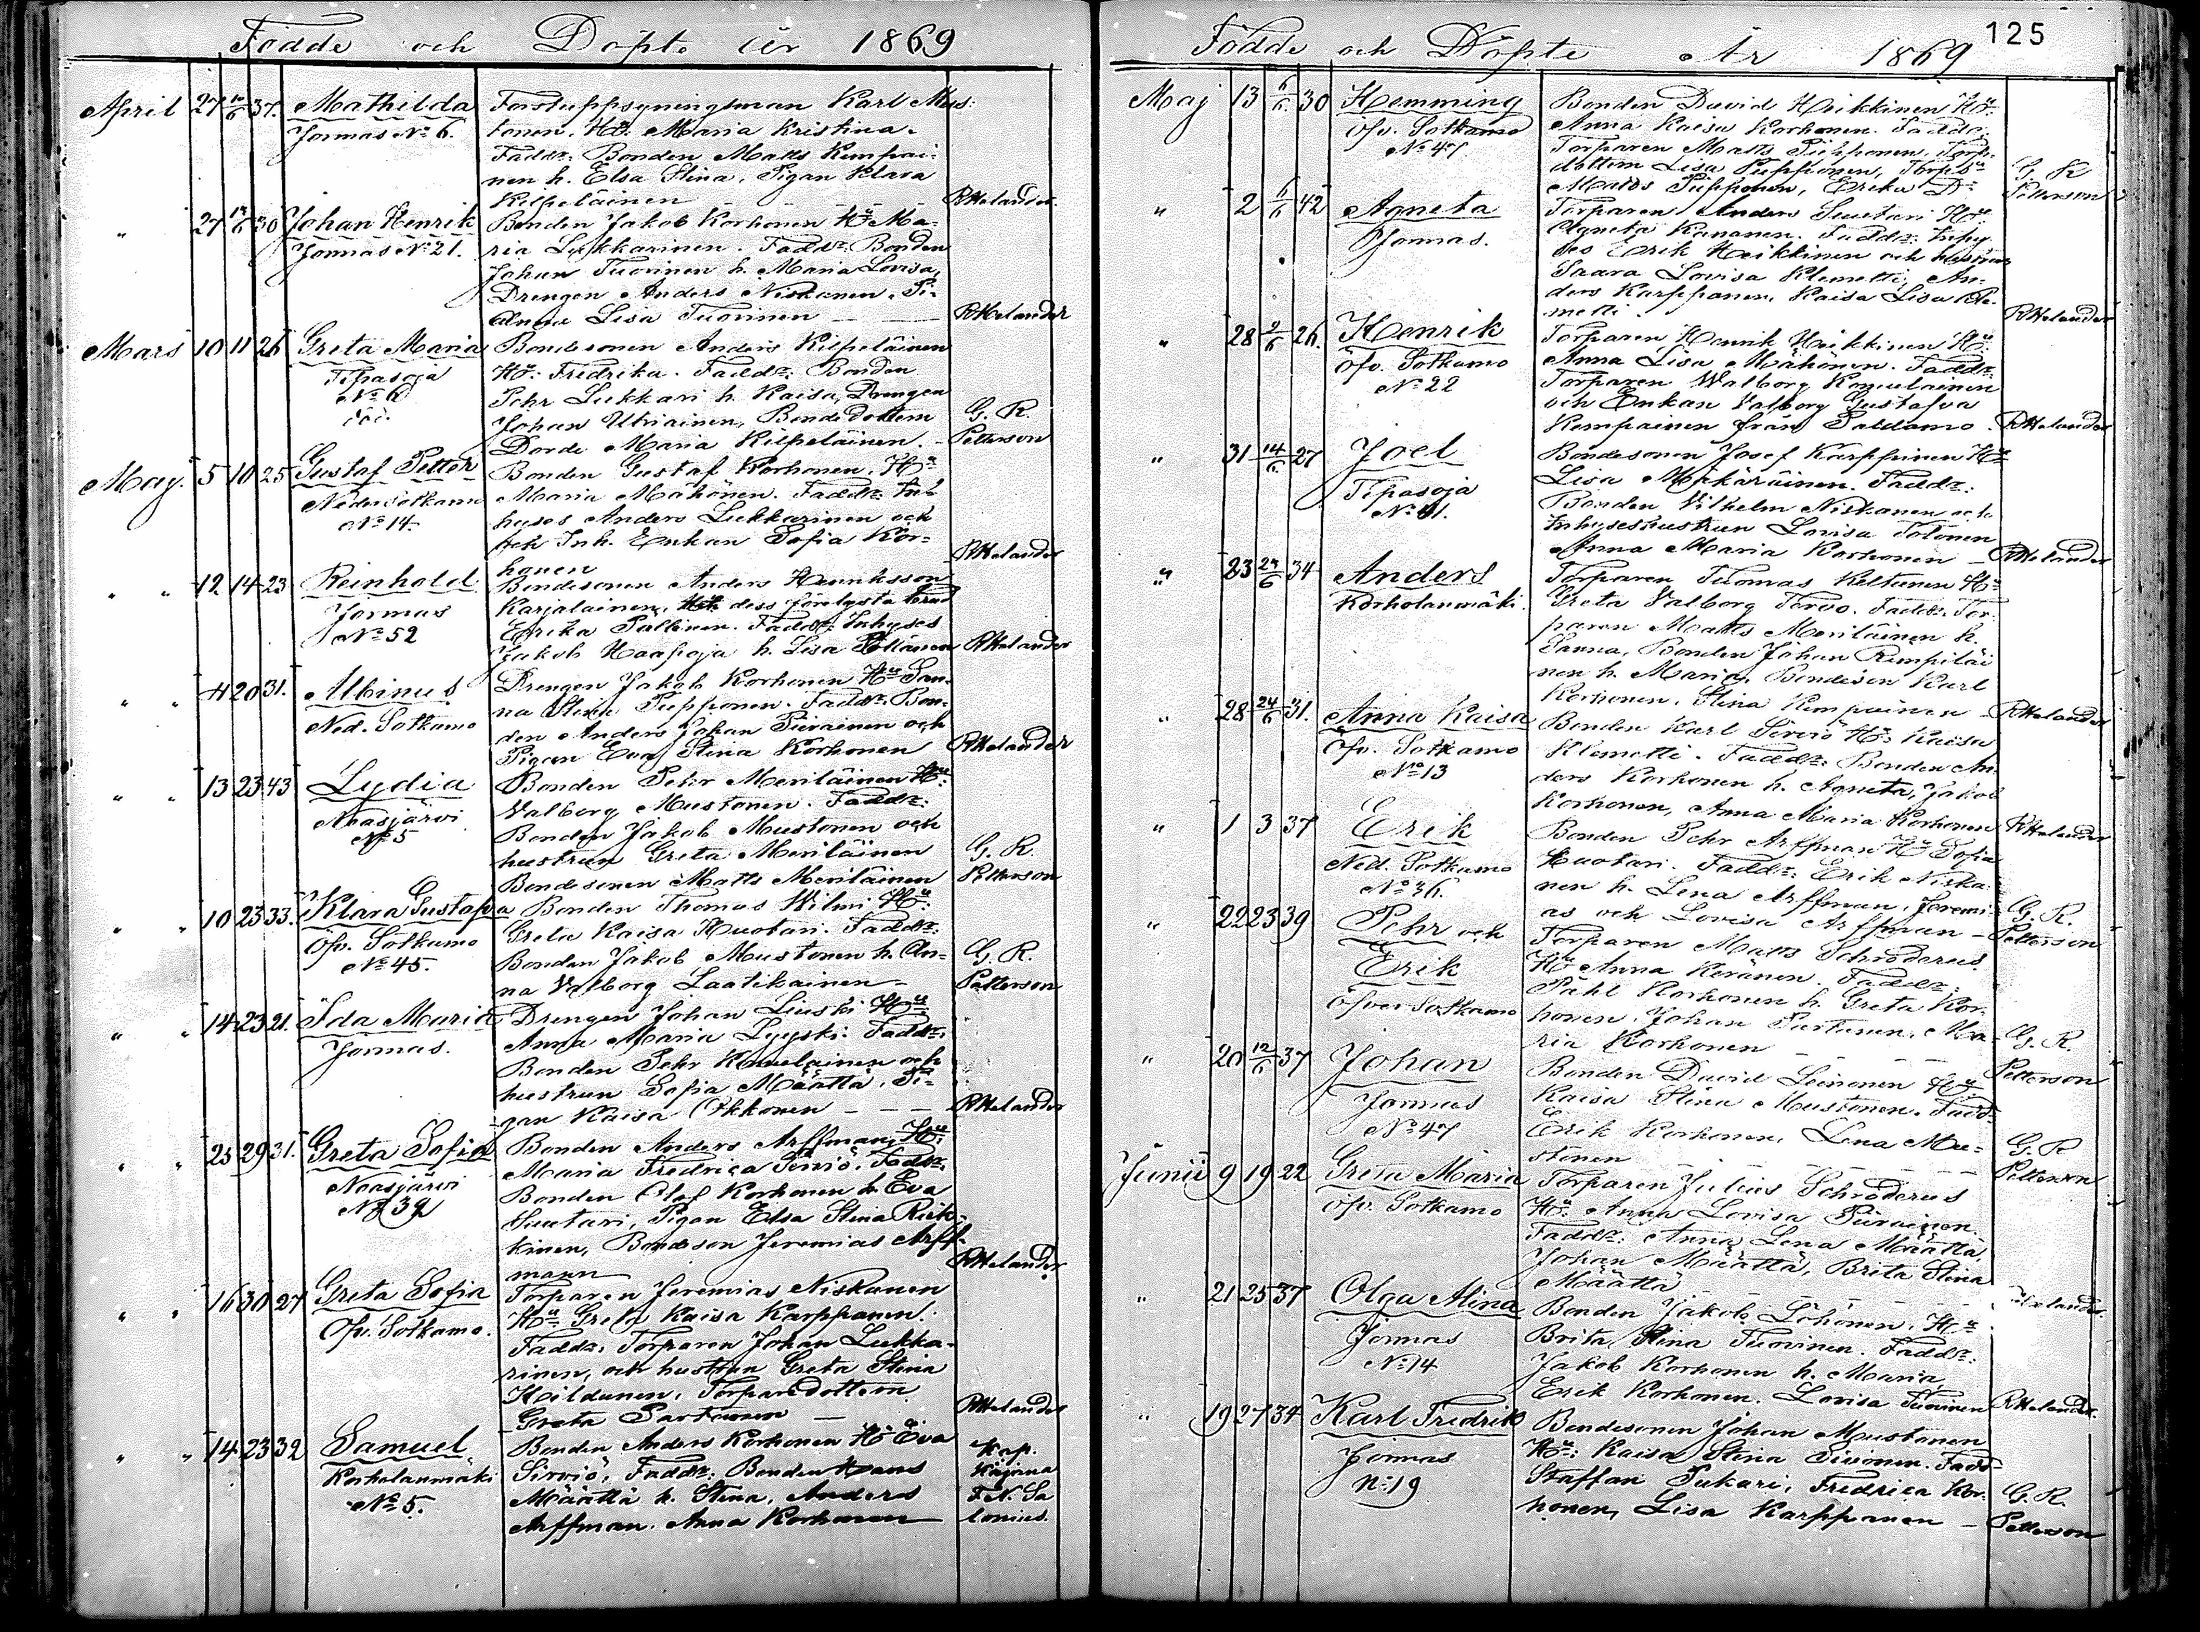 Födde och Döpte år 1869
April 27 10/6 37. Mathilda
Jormas No 6.
Forstuppsyningsman Karl Mus-
tonen. Hu. Maria Kristina.
Faddr: Bonden Matts Kempai-
nen h. Elsa Stina, Pigan Klara
Kilpeläinen RHelander
" 27 13/6 30 Johan Henrik
Jormas No 21.
Bonden Jakob Korhonen Hu Ma-
ria Lukkarinen. Faddr: Bonden
Johan Tuovinen h. Maria Lovisa,
Drengen Anders Niskanen, Pi-
Anna Lisa Tuovinen RHelander
Mars 10 11 26 Greta Maria
Tipasoja
No 6
Bondesonen Anders Kilpeläinen
Hu: Fredrika. Faddr: Bonden
Pehr Lukkari h. Kaisa, Drengen
Johan Utriainen, Bonde dottern
Dorde Maria Kilpeläinen. G. R. Petterson
Maij. 5 10 25 Gustaf Petter
Neder Sotkamo
No 14.
Bonden Gustaf Korhonen. Hu
Maria Mähönen. Faddr: In-
huses Anders Lukkarinen och
och Inh. Enkan Sofia Kor-
honen RHelander
" " 12 14 23 Reinhold
Jormas
No 52
Bondesonen Anders Henriksson
Karjalainen, dess förelysta brud
Erika Pallinen. Faddr: Inhyses
Jakob Haapoja h. Lisa Pöllänen RHelander
" " 4 20 31. Albinus
Ned. Sotkamo
Drengen Jakob Korhonen Hu San-
na Stina Piipponen. Faddr: Bon-
den Anders Johan Piirainen och
Pigan Eva Stina Korhonen RHelander
" " 13 23 43 Lydia
Naasjärvi
No 5
Bonden Pehr Meriläinen Hu:
Valborg Mustonen. Faddr:
Bonden Jakob Mustonen och
hustrun Greta Meriläinen
Bondesonen Matts Meriläinen G. R. Petterson
" " 10 23 33. Klara Gustafva
Öfv. Sotkamo
No 45.
Bonden Thomas Wilmi Hu:
Greta Kaisa Huotari. Faddr:
Bonden Jakob Mustonen h. An-
na Valborg Laatikainen G. R. Petterson
" " 14 23 21. Ida Maria
Jormas.
Drengen Johan Liuski Hu
Anna Maria Lyyski. Faddr:
Bonden Pehr Komulainen och
hustrun Sofia Määttä. Pi-
gan Kaisa Okkonen RHelander
" " 25 29 31. Greta Sofia
Naasjärvi
No 39
Bonden Anders Arffman, Hu:
Maria Fredrica Sirviö. Faddr:
Bonden Olof Korhonen h. Eva
Suutari, Pigan Elsa Stina Keik-
kinen, Bondeson Jeremias Arff-
mann RHelander
" " 16 30 27 Greta Sofia
Öfv. Sotkamo.
Torparen Jeremias Niskanen
Hu Greta Kaisa Karppanen.
Faddr: Torparen Johan Lukka-
rinen, och hustrun Greta Stina
Heildunen, Torparedottern
Greta Partanen RHelander
" " 14 23 32 Samuel
Korholanmäki
No 5.
Bonden Anders Korhonen Hu Eva
Sirviö, Faddr: Bonden Hans
Määttä h. Stina, Anders
Arffman. Anna Korhonen Kap. Kajana F.N. Sa lonius.
Födde och Döpte År 1869 125
Maj 13 6/6 30 Hemming
Öfv. Sotkamo
No 47
Bonden David Heikkinen Hu
Anna Kaisa Korhonen. Faddr:
Torparen Matts Piipponen, Torp-
dottern Lisa Piipponen, Torpsu
Matts Piipponen, Erika Dr G. R Petterson
" 2 6/6 42 Agneta
Jormas.
Torparen Anders Suutari Hu:
Agneta Kananen. Faddr: Inhy-
ses Erik Heikkinen och hustrun
Saara Lovisa Klemetti, An-
ders Karppanen, Kaisa Lisa Kle-
metti. RHelander
" 28 9/6 26. Henrik
Öfv. Sotkamo
No 22
Torparen Henrik Heikkinen Hu:
Anna Lisa Mähönen. Faddr:
Torparen Walborg Komulainen
och Enkan Valborg Gustafva
Kempainen från Paldamo. RHelander
" 31 14/6 27 Joel
Tipasoja
No 41.
Bondesonen Josef Karppinen Hu
Lisa Mikäräinen. Faddr:
Bonden Vilhelm Niskanen och
Inhyseshustrun Lovisa Tolonen
Anna Maria Korhonen RHelander
" 23 24/6 34 Anders
Korholanmäki.
Torparen Tuomas Keltunen Hu
Greta Valborg Tervo. Faddr: Tor-
paren Matts Meriläinen h.
Sanna, Bonden Johan Rimpiläi
nen h. Maria, Bondeson Karl
Korhonen, Stina Kempainen RHelander
" 28 24/6 31. Anna Kaisa
Öfv. Sotkamo
No 13
Bonden Karl Sirviö Hu: Kaisa
Klemetti. Faddr: Bonden An-
ders Korhonen h. Agneta, Jakob
Korhonen, Anna Maria Korhonen RHelander
" 1 3 37 Erik
Ned. Sotkamo
No 36.
Bonden Pehr Arffman Hu Sofia
Huotari. Faddr: Erik Niska-
nen h. Lena Arffman, Jeremi-
as och Lovisa Arffman G. R. Petterson
" 22 23 39 Pehr och
Erik
Öfver Sotkamo
Torparen Matts Schroderus
Hu Anna Keränen. Faddr:
Påhl Korhonen h. Greta Kor-
honen, Johan Purtunen. Ma-
ria Korhonen G. R. Petterson
" 20 12/6 37 Johan
Jormas
No 47
Bonden David Leinonen Hu
Kaisa Stina Mustonen. Fadd:
Erik Korhonen, Lena Mu-
stonen G. R Petterson
Junii 9 19 22 Greta Maria
Öfv. Sotkamo
Torparen Julius Schroderus
Hu: Anna Lovisa Piirainen
Faddr: Anna Lena Määttä,
Johan Määttä, Brita Stina
Määttä Helander.
" 21 25 37 Olga Alina
Jormas
No 14
Bonden Jakob Löhönen. Hu
Brita Stina Tuovinen. Faddr:
Jakob Korhonen h. Maria
Erik Korhonen. Lovisa Tuovinen RHelander
" 19 27 34 Karl Fredrik
Jormas
No 19
Bondesonen Johan Mustonen
Hu: Kaisa Stina Sivonen. Fadd-
Staffan Pukari, Fredrica Kor-
honen, Lisa Karppanen G. R. Petterson